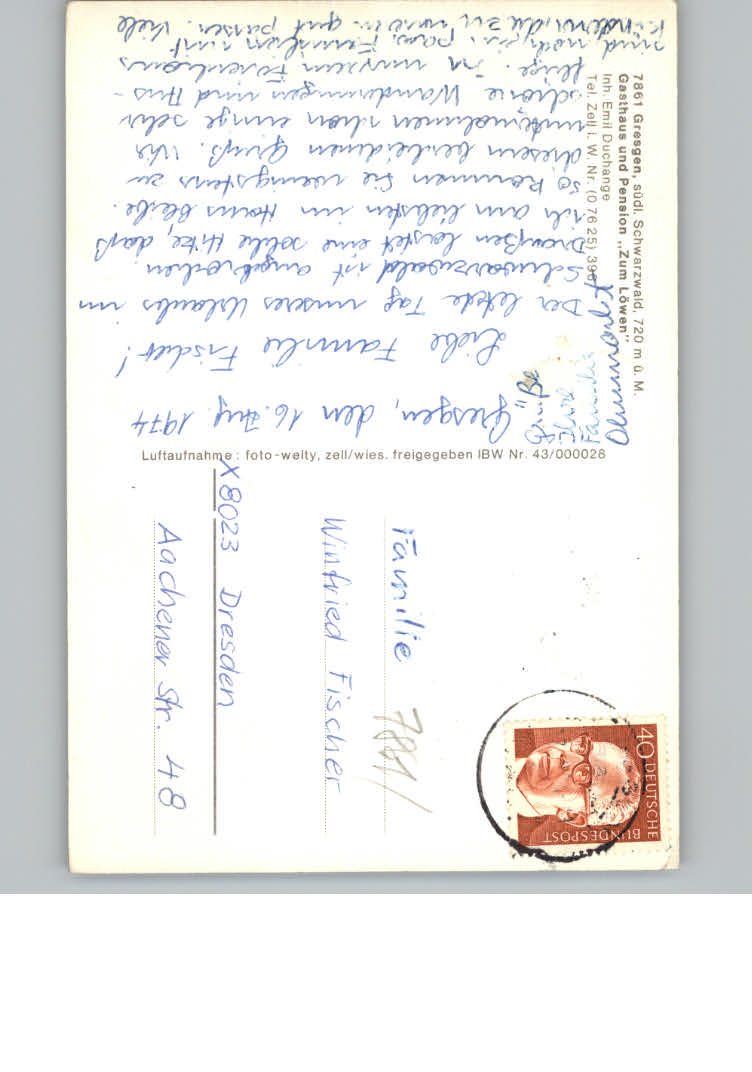 7861 Gresgen, südl. Schwarzwald, 720 m ü. M.
Gasthaus und Pension „Zum Löwen"
Inh. Emil Duchange
Tel. Zell i. W. Nr. (0 76 25) 396
Gresgen, den 16. Aug. 1974
Liebe Familie Fischer!
Der letzte Tag unseres Urlaubs im
Schwarzwald ist angebrochen.
Draußen lastet eine solche Hitze, daß
ich am liebsten im Haus bleibe.
So kommen Sie wenigstens zu
diesem bescheidenen Gruß. Wir
unternahmen schon einige sehr
schöne Wanderungen und Aus-
flüge. In unserem Ferienhaus
sind noch ein paar Familien mit
Kindern, die zu uns gut passen. Viele
Grüße
Ihre
Familie
Luftaufnahme: foto-welty, zell/wies. freigegeben IBW Nr. 43/000026
40 DEUTSCHE
BUNDESPOST
Familie
7861/
Winfried Fischer
X8023 Dresden
Aachener Str. 48